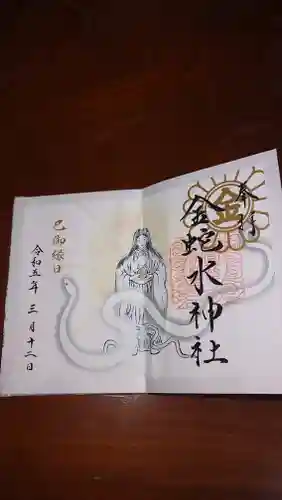 奉拝
金
金蛇水神社
巳御縁日
令和五年 三月十二日